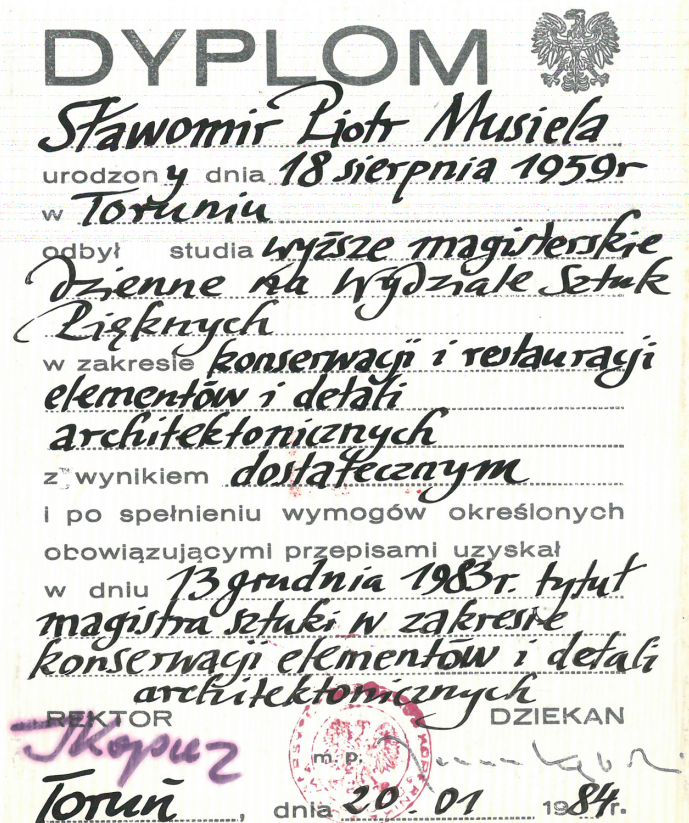 DYPLOM
Sławomir Piotr Musiela
urodzony dnia 18 sierpnia 1959r
w Toruniu
odbył studia wyższe magisterskie
dzienne na Wydziale Sztuk
Pięknych
w zakresie konserwacji i restauracji
elementów i detali
architektonicznych
z wynikiem dostatecznym
i po spełnieniu wymogów określonych
obowiązującymi przepisami uzyskał
w dniu 13 grudnia 1983r. tytuł
magistra sztuki w zakresie
konserwacji elementów i detali
architektonicznych
REKTOR DZIEKAN
m. p.
Toruń, dnia 20 01 1984r.